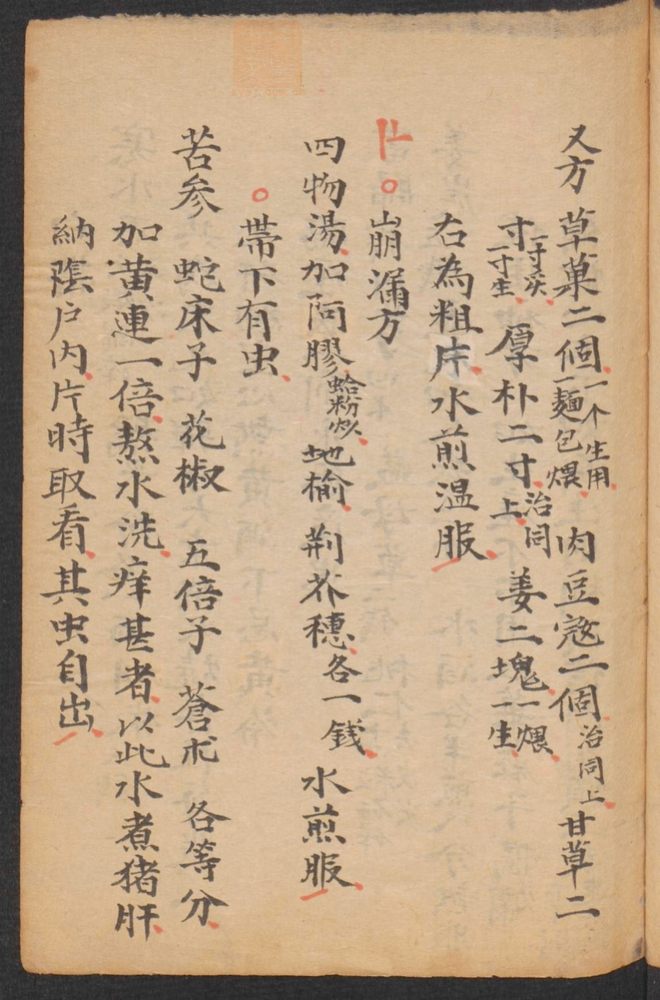 又方 草菓二個一个生用一麺包煨 肉豆蔻二個治同上 甘草二
寸一寸炙一寸生 厚朴二寸治同上 姜二塊一煨一生
右為粗片水煎温服
崩漏方
四物湯加阿膠蛤粉炒地榆 荆芥穗各一錢 水煎服
帶下有虫
苦参 蛇床子 花椒 五倍子 蒼朮 各等分
加黄連一倍熬水洗痒甚者以此水煮猪肝
納陰户内片時取看其虫自出